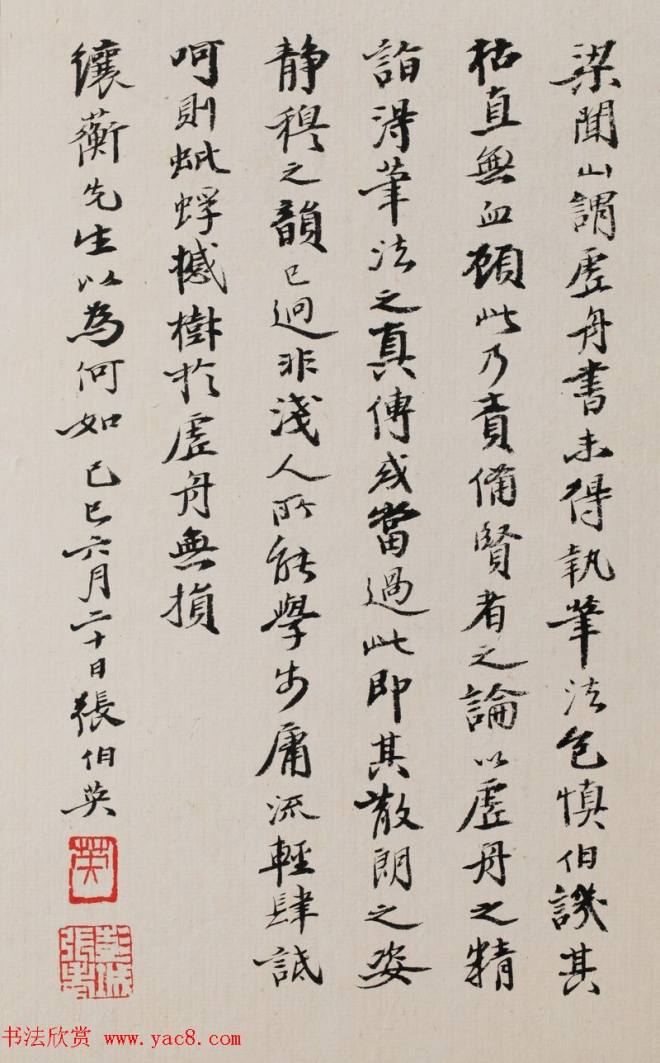 梁聞山謂虛舟書未得執筆法包慎伯譏其
枯直無血顧此乃責備賢者之論以虛舟之精
詣淂筆法之真傳或當過此即其散朗之姿
静穆之韻已迥非淺人所能學步庸流輕肆詆
呵則蚍蜉撼樹於虛舟無損
纕蘅先生以為何如己巳六月二十日張伯英
英
彭城張
书法欣赏 www.yac8.com